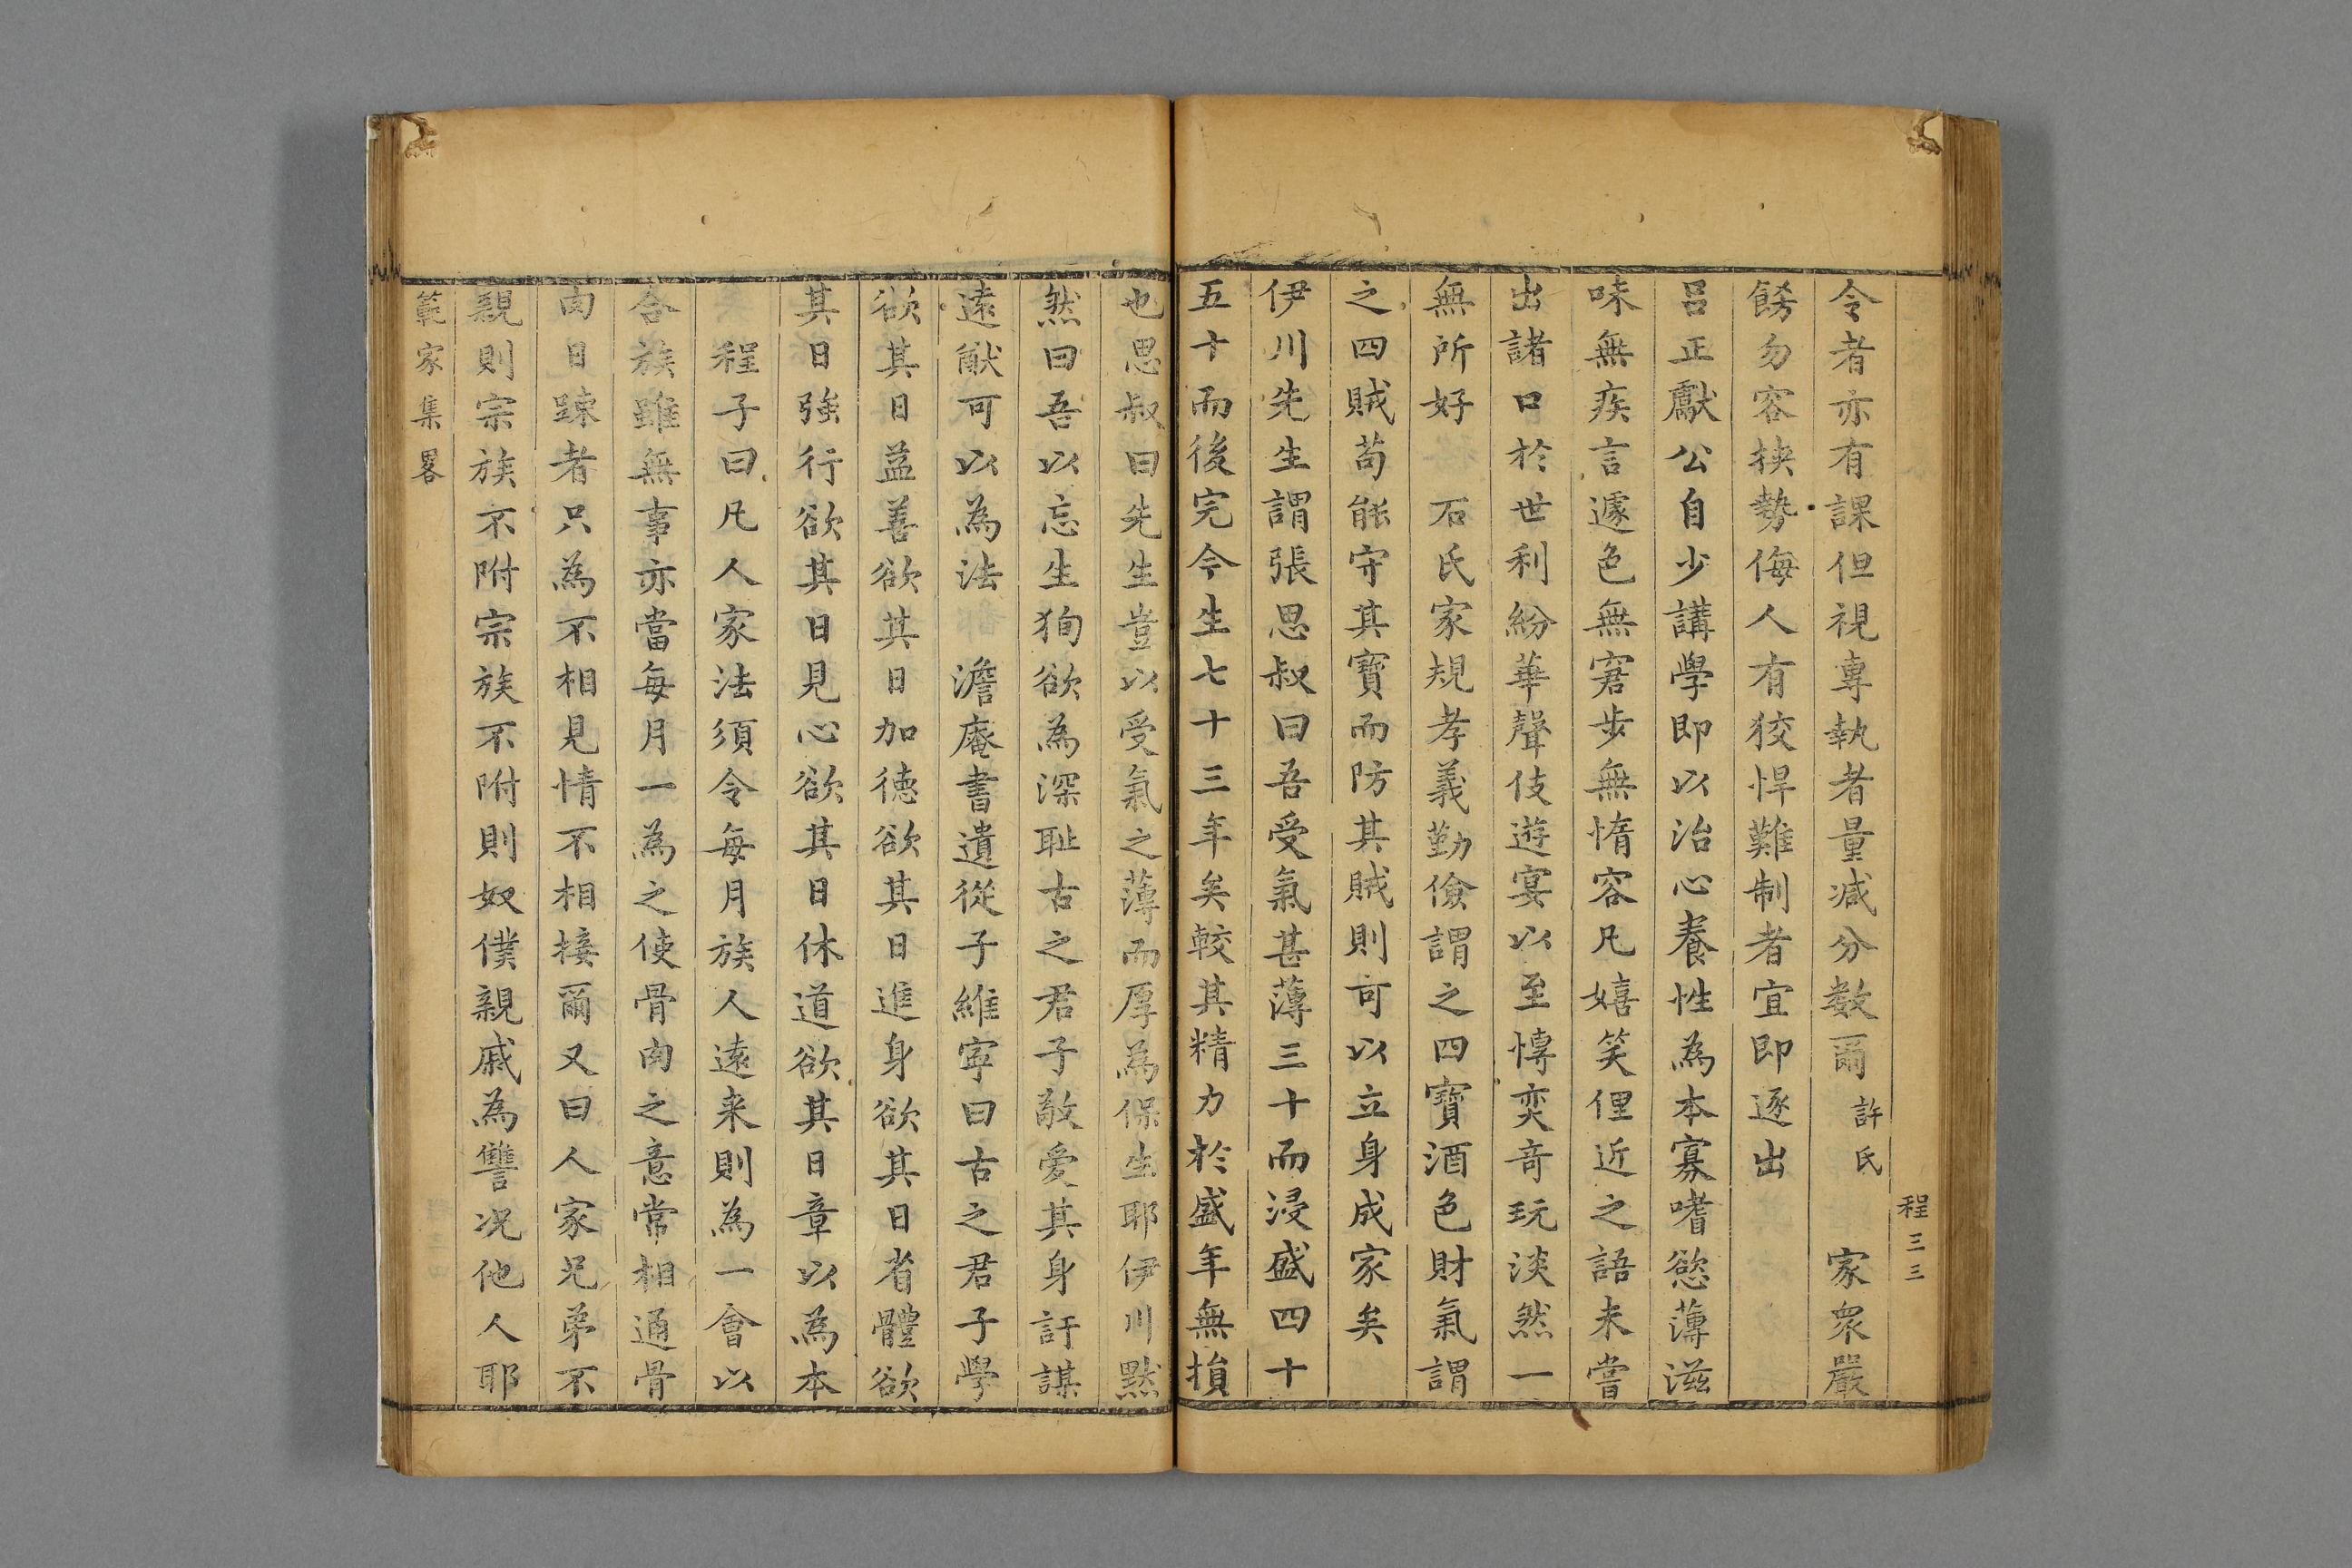 程三三
令者亦有課但視專執者量減分數爾 許氏 家衆嚴
餝勿容挾勢侮人有狡悍難制者宜即逐出
呂正獻公自少講學即以治心養性為本寡嗜慾薄滋
味無疾言遽色無窘步無惰容凡嬉笑俚近之語未嘗
出諸口於世利紛華聲伎遊宴以至慱奕竒玩淡然一
無所好 石氏家規孝義勤儉謂之四寶酒色財氣謂
之四賊苟能守其寶而防其賊則可以立身成家矣
伊川先生謂張思叔曰吾受氣甚薄三十而浸盛四十
五十而後完今生七十三年矣較其精力於盛年無損
也思叔曰先生豈以受氣之薄而厚為保生耶伊川黙
然曰吾以忘生狥欲為深耻古之君子敬愛其身訏謀
遠猷可以為法 澹庵書遺從子維寧曰古之君子學
欲其日益善欲其日加德欲其日進身欲其日省體欲
其日強行欲其日見心欲其日休道欲其日章以為本
程子曰凡人家法須令每月族人遠来則為一會以
合族雖無事亦當每月一為之使骨肉之意常相通骨
肉日踈者只為不相見情不相接爾又曰人家兄弟不
親則宗族不附宗族不附則奴僕親戚為讐况他人耶
範家集畧